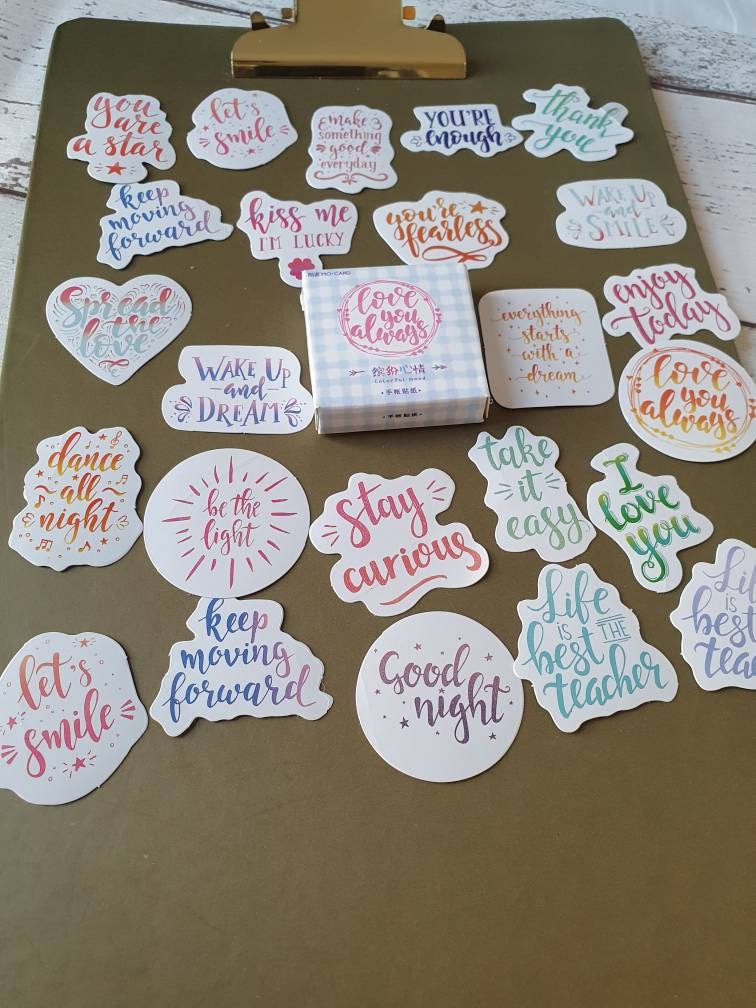 you
are
a star
let's
smile
make
something
good
everyday
YOU'RE
enough
thank
you
keep
moving
forward
kiss me
I'M LUCKY
you're
fearless
WAKE UP
and
SMILE
Spread
the
love
WAKE UP
and
DREAM
MO•CARD
love
you
always
缤纷心情
Colorful mood
•手帐贴纸•
•手帐贴纸•
everything
starts
with a
dream
enjoy
today
love
you
always
dance
all
night
be the
light
stay
curious
take
it
easy
I
love
you
let's
smile
keep
moving
forward
Good
night
Life
IS THE
best
teacher
Li
IS
best
tea